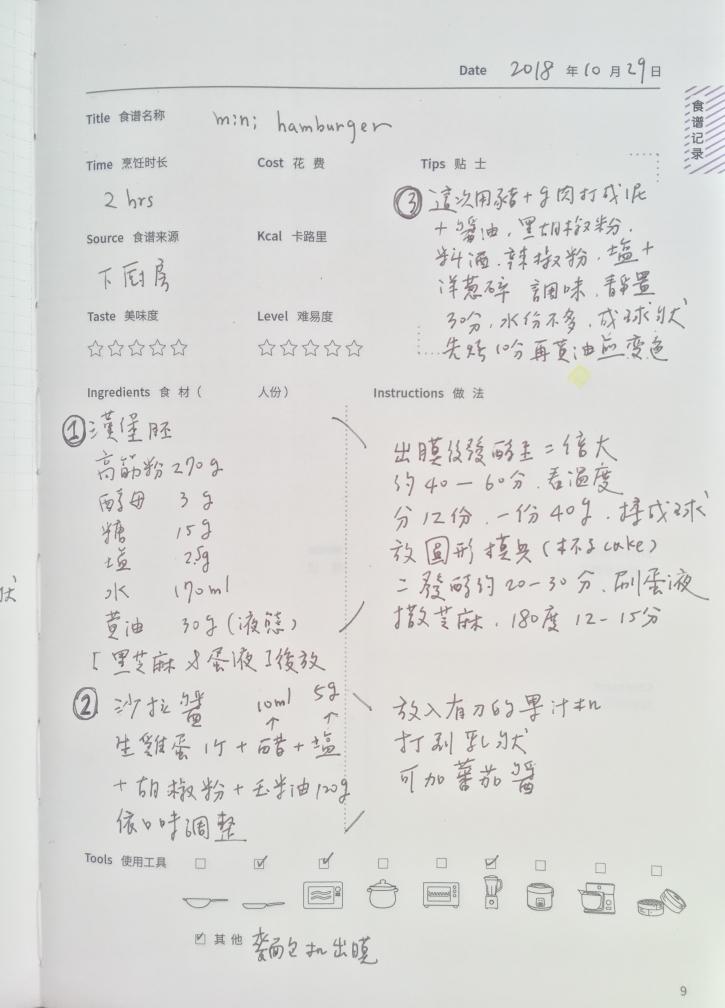 Date 2018 年 10 月 29 日
食谱记录
Title 食谱名称 mini hamburger
Time 烹饪时长
2 hrs
Cost 花 费
Source 食谱来源
下厨房
Kcal 卡路里
Taste 美味度
☆☆☆☆☆
Level 难易度
☆☆☆☆☆
Tips 贴 士
③ 這次用豬+牛肉打成泥
+醬油.黑胡椒粉.
料酒.辣椒粉.塩+
洋蔥碎 調味.靜置
30分,水份不多,成球狀
先烤10分再黄油煎变色
Ingredients 食 材 ( 人份)
① 漢堡胚
高筋粉 270g
酵母 3g
糖 15g
塩 2.5g
水 170ml
黄油 30g (液態)
[黑芝麻 & 蛋液]後放
② 沙拉醬 10ml 5g
生雞蛋1个+醋+塩
+胡椒粉+玉米油120g
依口味調整
Instructions 做 法
出膜後發酵至二倍大
约40-60分.看温度
分12份.一份40g.揉成球
放圆形模具(杯子cake)
二發酵约20-30分.刷蛋液
撒芝麻.180度12-15分
放入有刀的果汁机
打到乳狀
可加蕃茄醬
Tools 使用工具
其 他 麵包机出膜
9